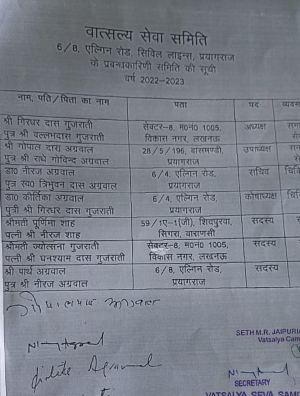 वात्सल्य सेवा समिति
6/8, एल्गिन रोड, सिविल लाइन्स, प्रयागराज
के प्रबन्धकारिणी समिति की सूची
वर्ष 2022-2023
नाम, पति/पिता का नाम पता पद
श्री गिरधर दास गुजराती सेक्टर-8, म0न0 1005, अध्यक्ष
पुत्र श्री वल्लभदास गुजराती विकास नगर, लखनऊ
श्री गोपाल दास अग्रवाल 28/5/196, बांसमण्डी, उपाध्यक्ष
पुत्र श्री राधे गोविन्द अग्रवाल प्रयागराज
डा0 नीरज अग्रवाल 6/4, एल्गिन रोड, सचिव
पुत्र स्व0 त्रिभुवन दास अग्रवाल प्रयागराज
डा0 कीर्तिका अग्रवाल 6/4, एल्गिन रोड, कोषाध्यक्ष
पुत्री श्री गिरधर दास गुजराती प्रयागराज
श्रीमती पूर्णिमा शाह 59/1ए-1(जी), शिवपुरवा, सदस्य
पत्नी श्री नीरज शाह सिगरा, वाराणसी
श्रीमती ज्योत्सना गुजराती सेक्टर-8, म0न0 1005, सदस्य
पत्नी श्री घनश्याम दास गुजराती विकास नगर, लखनऊ
श्री पार्थ अग्रवाल 6/8, एल्गिन रोड, सदस्य
पुत्र श्री नीरज अग्रवाल प्रयागराज
SETH M.R. JAIPURIA
Vatsalya Cam
SECRETARY
VATSALYA SEVA SAMI